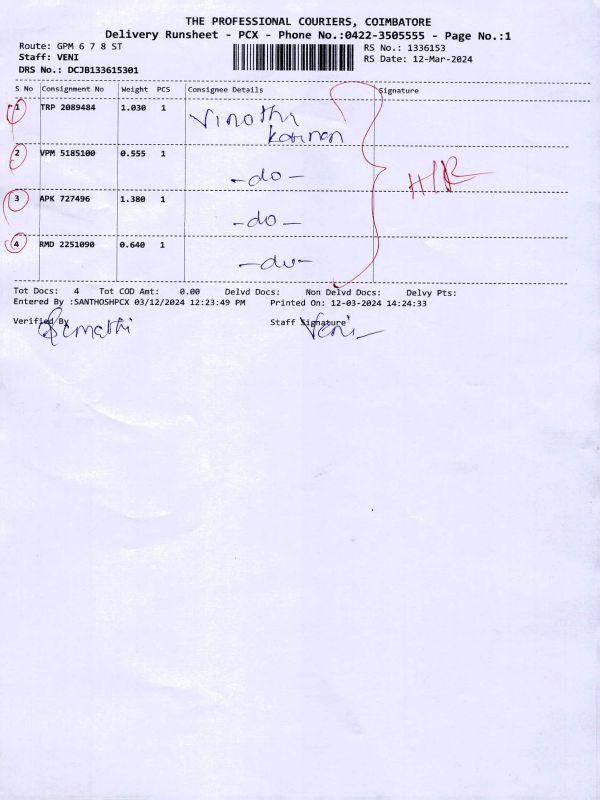 THE PROFESSIONAL COURIERS, COIMBATORE
Delivery Runsheet - PCX - Phone No.:0422-3505555 - Page No.:1
Route: GPM 6 7 8 ST
RS No.: 1336153
Staff: VENI
RS Date: 12-Mar-2024
DRS No.: DCJB133615301
S No Consignment No Weight PCS Consignee Details Signature
1 TRP 2089484 1.030 1 Vinotha
Kannan
2 VPM 5185100 0.555 1
-do-
H/R
3 APK 727496 1.380 1
-do-
4 RMD 2251090 0.640 1
-do-
Tot Docs: 4 Tot COD Amt: 0.00 Delvd Docs: Non Delvd Docs: Delvy Pts:
Entered By :SANTHOSHPCX 03/12/2024 12:23:49 PM Printed On: 12-03-2024 14:24:33
Verified By Staff Signature
Veni